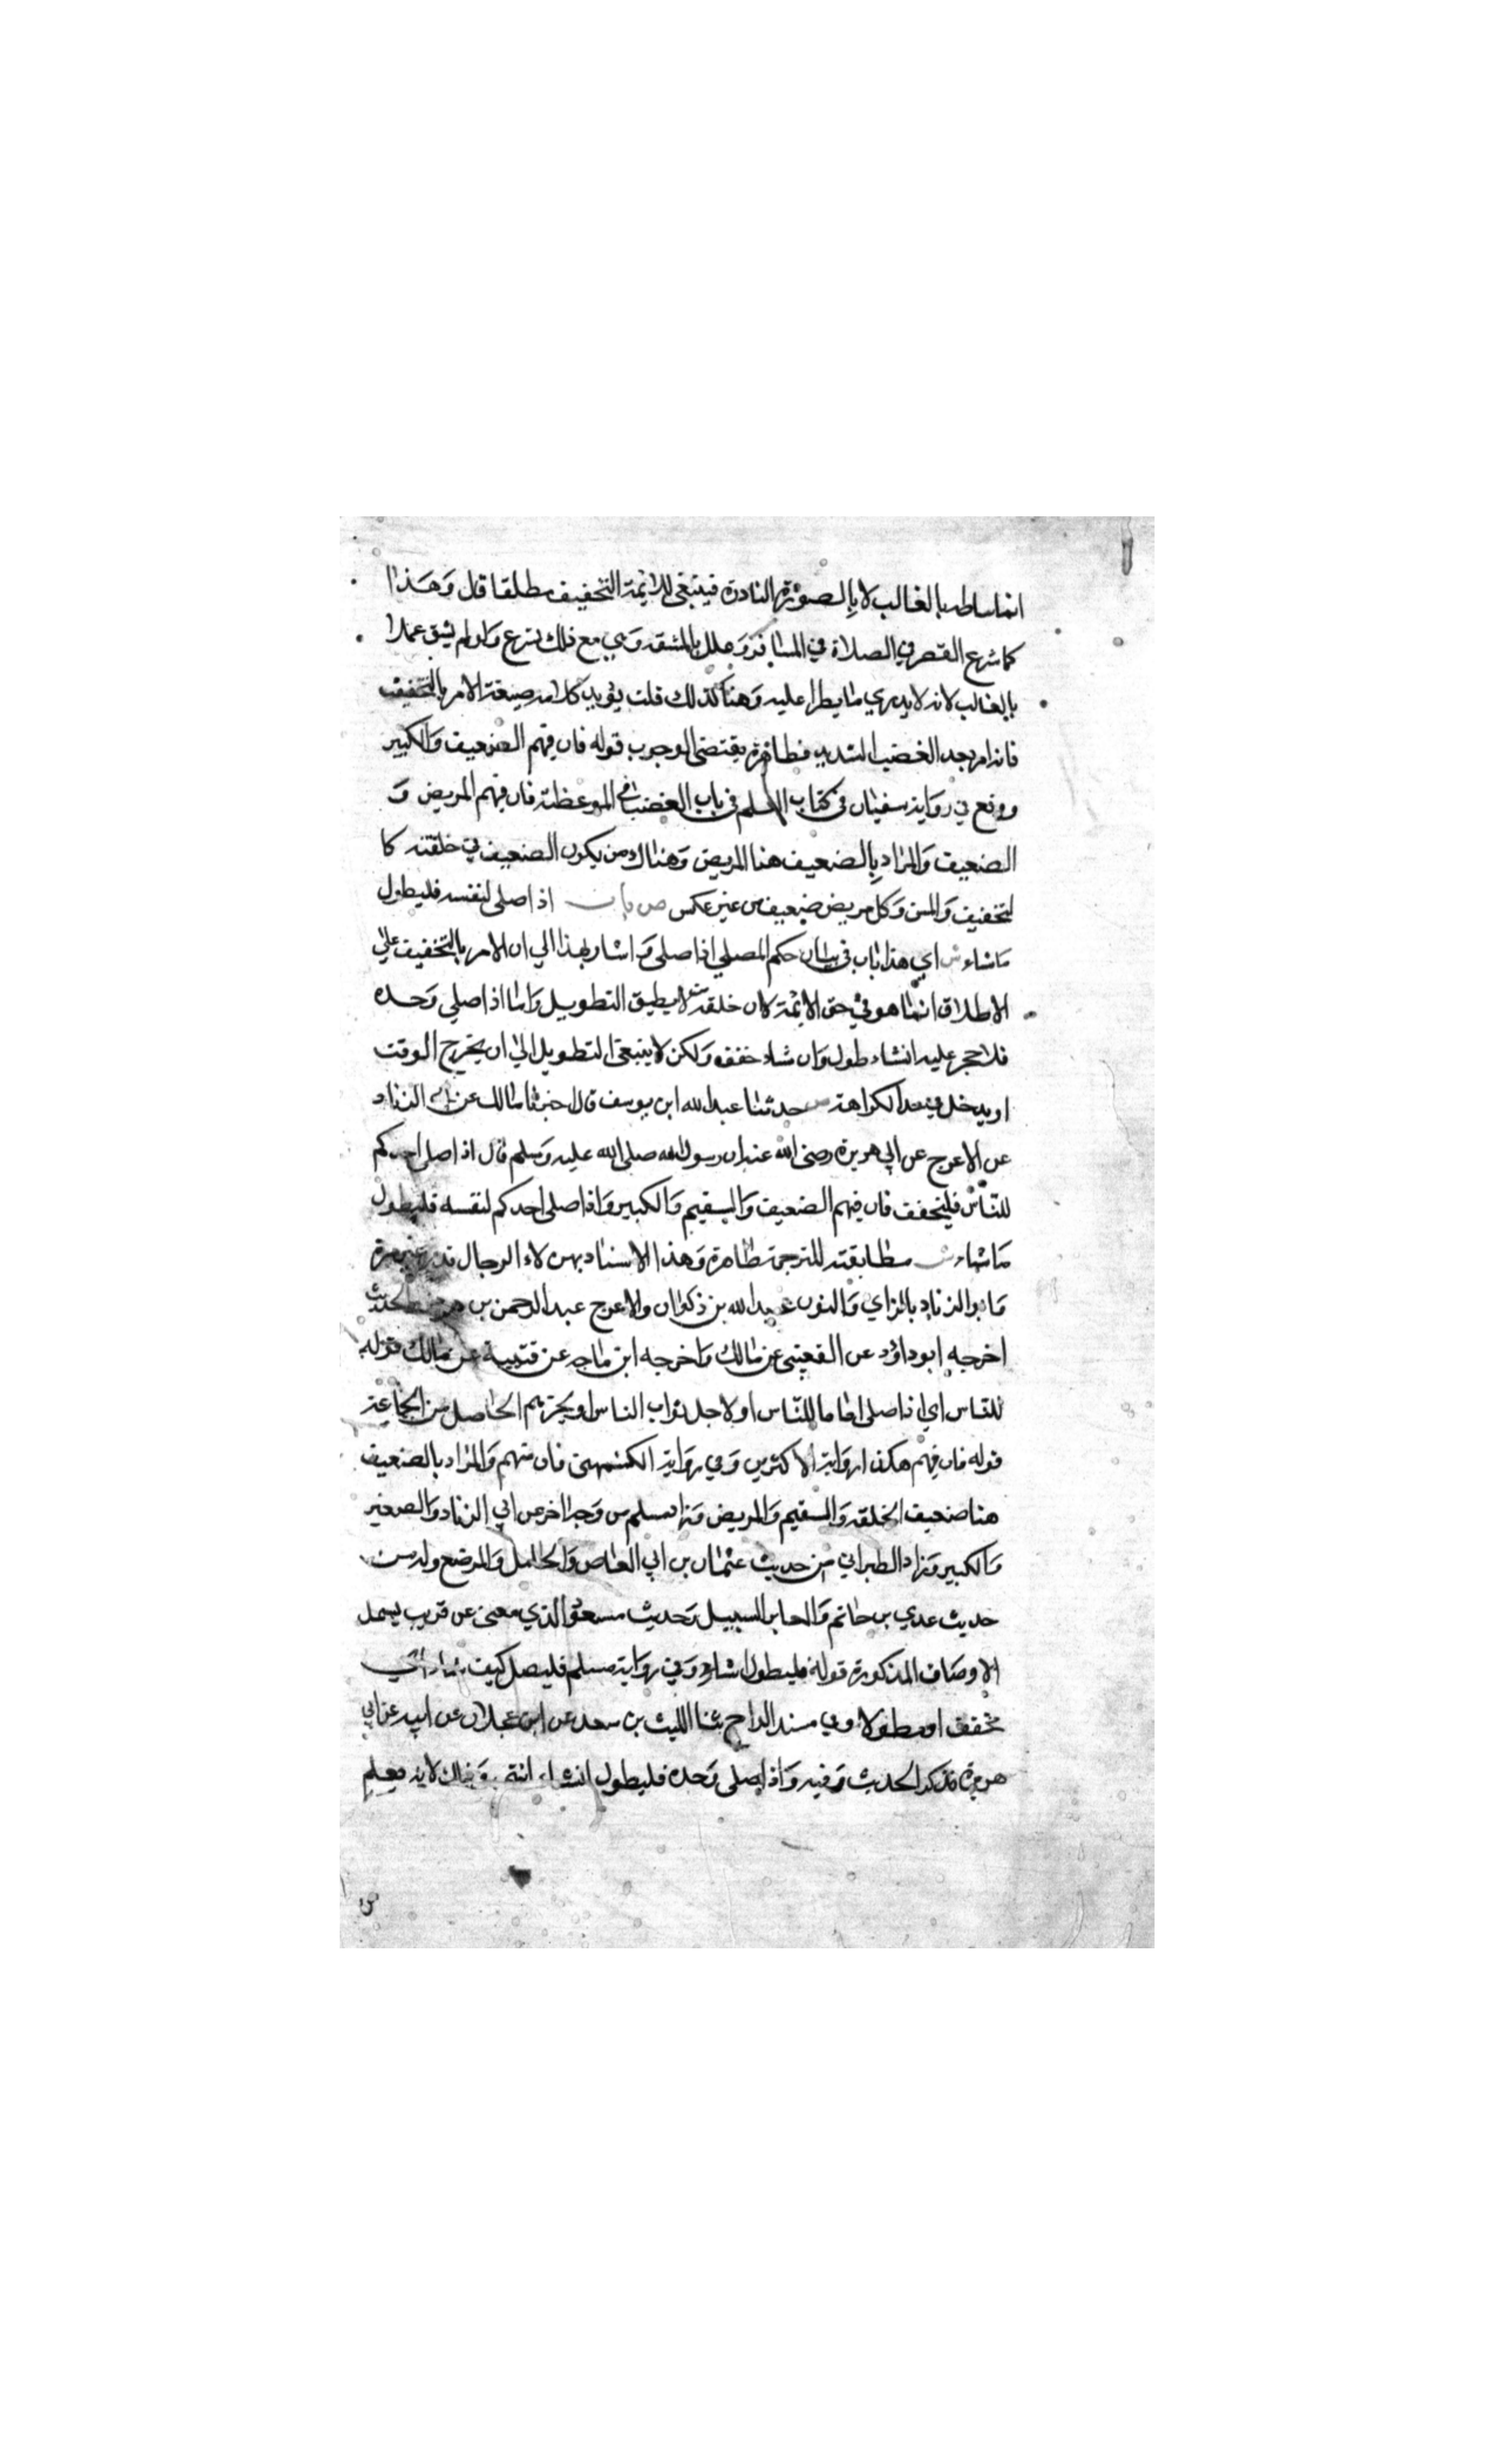 انما ساطه بالغالب لا بالصورة النادرة فينبغى للائمة التخفيف مطلقا قال وهذا
كما شرع القصر في الصلاة في المسافر وعلل بالمشقة وهي مع ذلك يشرع ولو لم يشق عملا
بالغالب لانه لا يدري ما يطرا عليه وهنا كذلك قلت يؤيد كلامه صيغة الامر بالتخفيف
فانه امر بعد الغضب الشديد فظاهره يقتضى الوجوب قوله فان فيهم الضعيف والكبير
ووقع في رواية سفيان في كتاب العلم فى باب الغضب في الموعظة فان فيهم المريض و
الضعيف والمراد بالضعيف هنا المريض وهناك من يكون الضعيف في خلقته كا
لتخفيف والمسن وكل مريض ضعيف من غير عكس ص باب اذا صلى لنفسه فليطول
ما شاء ش اي هذا باب في بيان حكم المصلي اذا صلى واشار بهذا الي ان الامر بالتخفيف على
الاطلاق انما هو في حق الائمة لان خلقه لا يطيق التطويل واما اذا صلي وحده
فلا حجر عليه ان شاء طول وان شاء خفف ولكن لا ينبغى التطويل الى ان يخرج الوقت
او يدخل في حد الكراهة ص حدثنا عبد الله ابن يوسف قال اخبرنا مالك عن ابي الزناد
عن الاعرج عن ابي هريرة رضى الله عنه ان رسول الله صلى الله عليه وسلم قال اذا صلى احدكم
للناس فليخفف فان فيهم الضعيف والسقيم والكبير واذا صلى احدكم لنفسه فليطول
ما شاء ش مطابقته للترجمة ظاهرة وهذا الاسناد بهولاء الرجال قد مر غير مرة
وابو الزناد بالزاي والنون عبد الله بن ذكوان والاعرج عبد الرحمن بن هرمز والحديث
اخرجه ابو داؤد عن القعنبى عن مالك واخرجه ابن ماجه عن قتيبة عن مالك قوله
للناس اي اذا صلى اماما للناس او لاجل ثواب الناس او بخيرهم الحاصل من الجماعة
قوله فان فيهم هكذا رواية الاكثرين وفي رواية الكشمهنى فان منهم والمراد بالضعيف
هنا ضعيف الخلقه والسقيم والمريض وزاد مسلم من وجه اخر عن ابي الزناد والصغير
والكبير وزاد الطبراني من حديث عثمان بن ابي العاص والحامل والمرضع وله من
حديث عدي بن حاتم والعابر السبيل وحديث مسعود الذي معنى عن قريب يشمل
الاوصاف المذكورة قوله فليطول ما شاء وفي رواية مسلم فليصل كيف شاء اي
مخففا او مطولا وفي مسند السراج ثنا الليث بن سعد عن ابن عجلان عن ابيه عن ابي
هريرة فذكر الحديث وفيه واذا صلى وحده فليطول ان شاء انتهى وذلك لانه يعلم